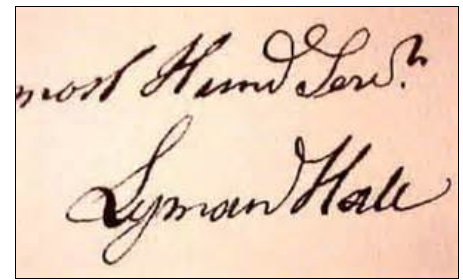 most Hum.d Serv.t
Lyman Hall